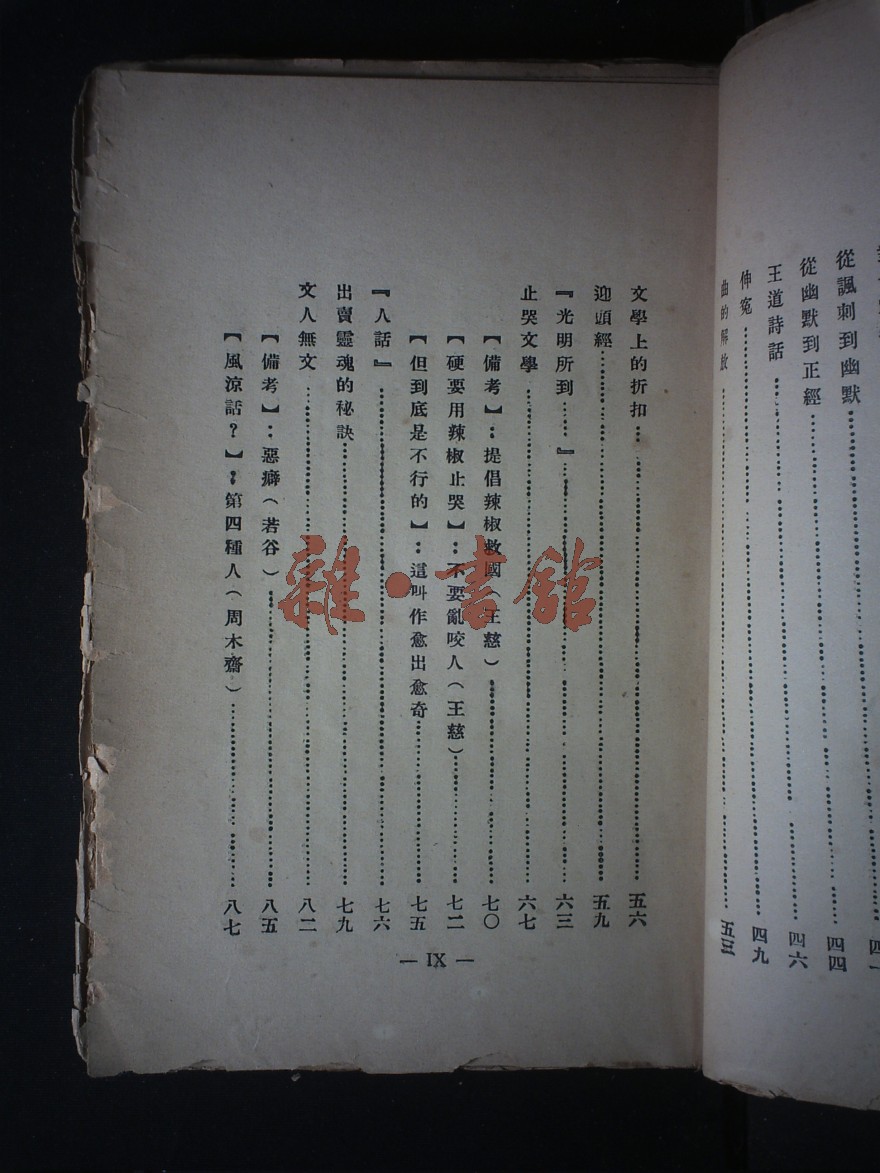 從諷刺到幽默……四一
從幽默到正經……四四
王道詩話……四六
伸冤……四九
曲的解放……五三
文學上的折扣……五六
迎頭經……五九
『光明所到……』……六三
止哭文學……六七
【備考】：提倡辣椒救國（王慈）……七〇
【硬要用辣椒止哭】：不要亂咬人（王慈）……七二
【但到底是不行的】：這叫作愈出愈奇……七五
『人話』……七六
出賣靈魂的秘訣……七九
文人無文……八二
【備考】：惡癖（若谷）……八五
【風涼話？】：第四種人（周木齋）……八七
— IX —
雜·書館